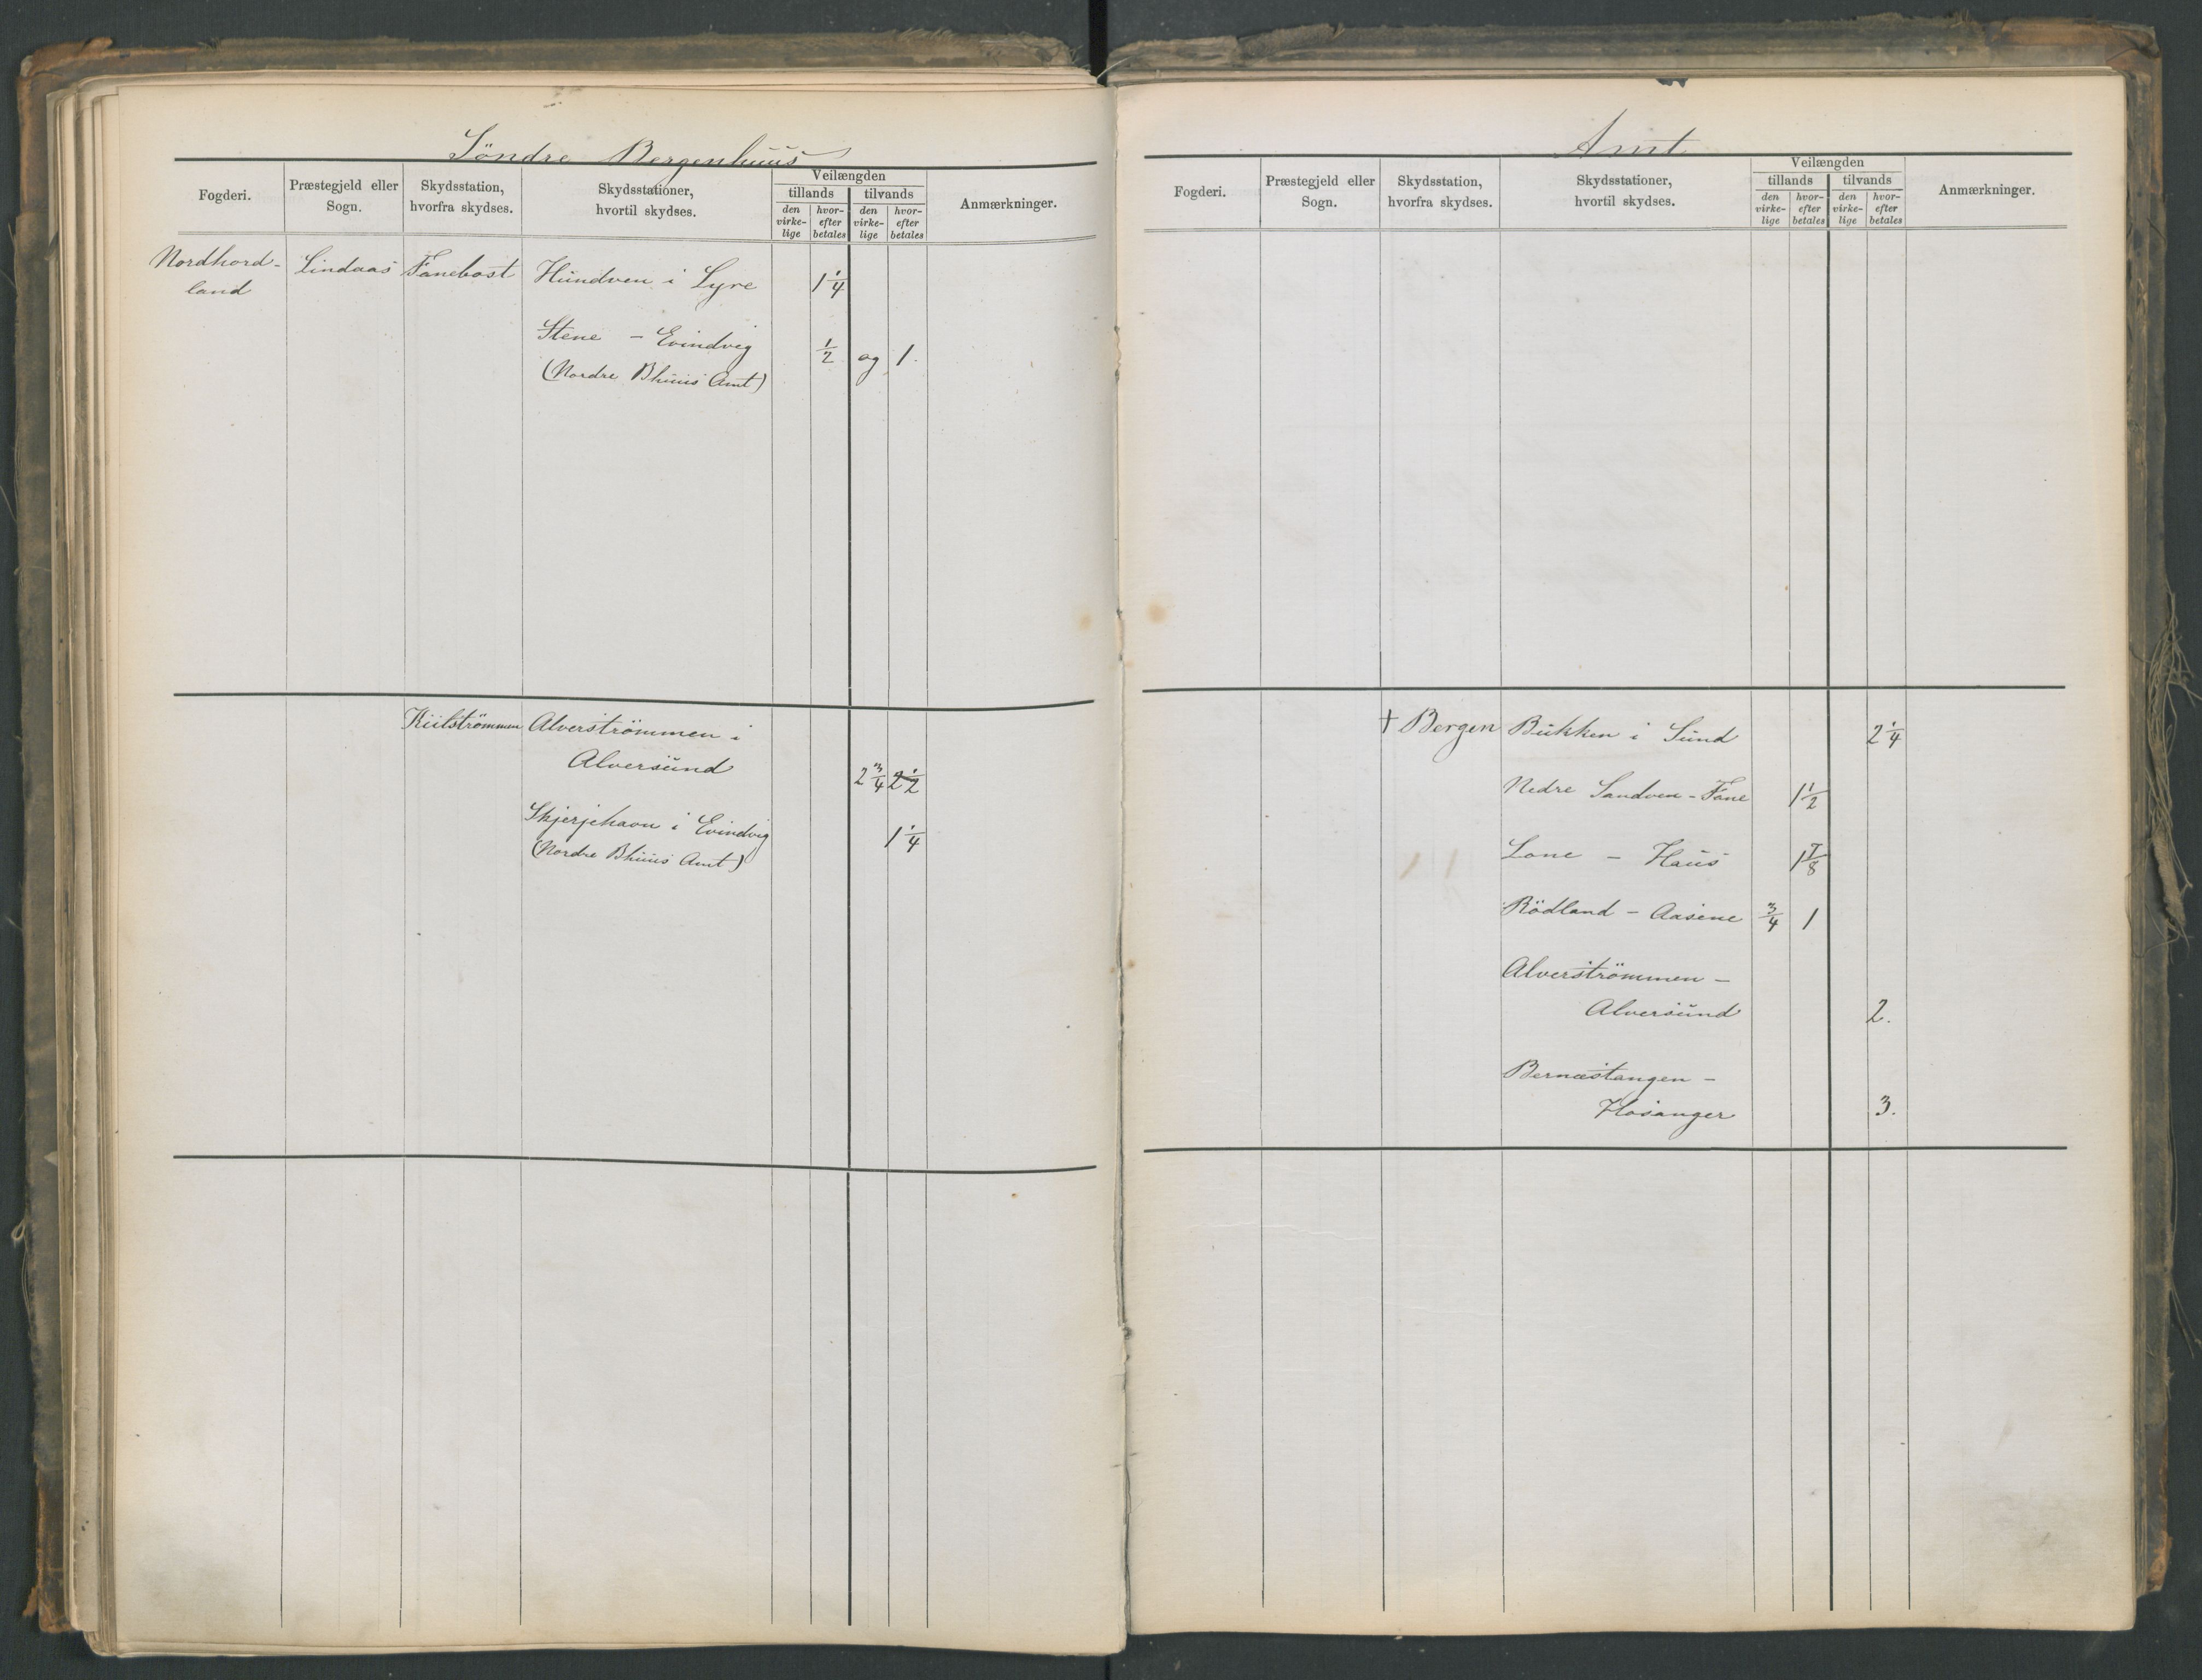 Söndre Bergenhuus
Fogderi.
Præstegjeld eller
Sogn.
Skydsstation,
hvorfra skydses.
Skydsstationer,
hvortil skydses.
Veilængden
tillands
tilvands
den
virke-
lige
hvor-
efter
betales
den
virke-
lige
hvor-
efter
betales
Anmærkninger.
Nordhord- Lindaas Fanebost Hundven i Lyre 1 1/4
land
Stene - Evindvig 1/2 og 1.
(Nordre Bhuus Amt)
Kiilströmmen Alverströmmen i
Alversund 2 3/4 2 1/2
Skjerjehavn i Evindvig 1 1/4
(Nordre Bhuus Amt)
Amt
Fogderi.
Præstegjeld eller
Sogn.
Skydsstation,
hvorfra skydses.
Skydsstationer,
hvortil skydses.
Veilængden
tillands
tilvands
den
virke-
lige
hvor-
efter
betales
den
virke-
lige
hvor-
efter
betales
Anmærkninger.
† Bergen Bukken i Sund 2 1/4
Nedre Sandven - Fane 1 1/2
Lone - Haus 1 7/8
Rödland - Aasene 3/4 1
Alverströmmen -
Alversund 2.
Bernæstangen -
Hosanger 3.